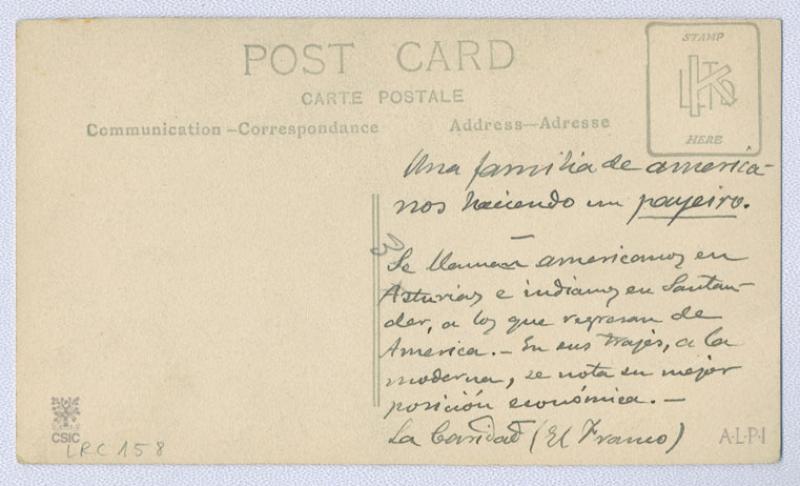 POST CARD
CARTE POSTALE
Communication–Correspondance
Address–Adresse
STAMP
LKTD
HERE
Una familia de america-
nos haciendo un payeiro.
Se llaman americanos en
Asturias e indianos en Santan-
der, a los que regresan de
America.– En sus trajes, a la
moderna, se nota su mejor
posición económica.–
La Caridad (El Franco)
3
CSIC
LRC 158
A·L·P·I